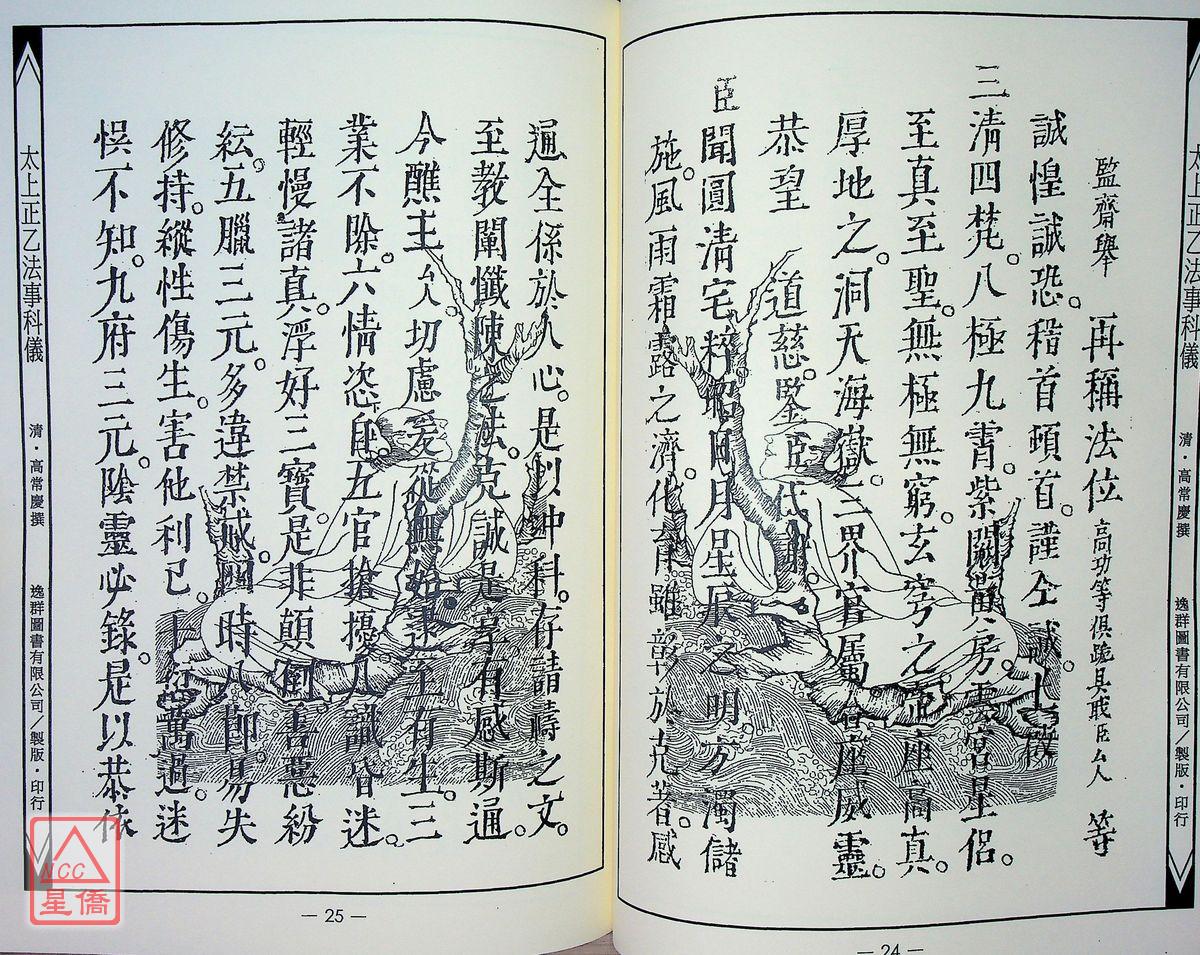 太上正乙法事科儀
清．高常慶撰
逸群圖書有限公司／製版．印行
監齋舉　再稱法位　高功等俱跪具職臣厶人　等
誠惶誠恐。稽首頓首。謹仝誠。上
三清四梵。八極九霄。紫闕　房。雲宮星侶。
至真至聖。無極無窮。玄穹之　座高真。
厚地之。洞天海嶽。三界官屬。合座威靈。
恭望　道慈。鑒臣代
臣聞圓清宅粹。昭日月星辰之明。方濁儲
施。風雨霜露之濟。化育雖彰於克著。感
— 24 —
通全係於人心。是以冲科。存請禱之文。
至教闡懺陳之法。克誠是享。有感斯通。
今醮主厶人。切慮爰從無始。逮至有生。三
業不除。六情恣用。五官搶擾。八識昏迷。
輕慢諸真。浮好三寶。是非顛倒。善惡紛
紜。五臘三元。多違禁戒。　時八節。易失
修持。縱性傷生。害他利己。　萬過。迷
悞不知。九府三元。陰靈必錄。是以恭依
太上正乙法事科儀
清．高常慶撰
逸群圖書有限公司／製版．印行
— 25 —
NCC
星僑